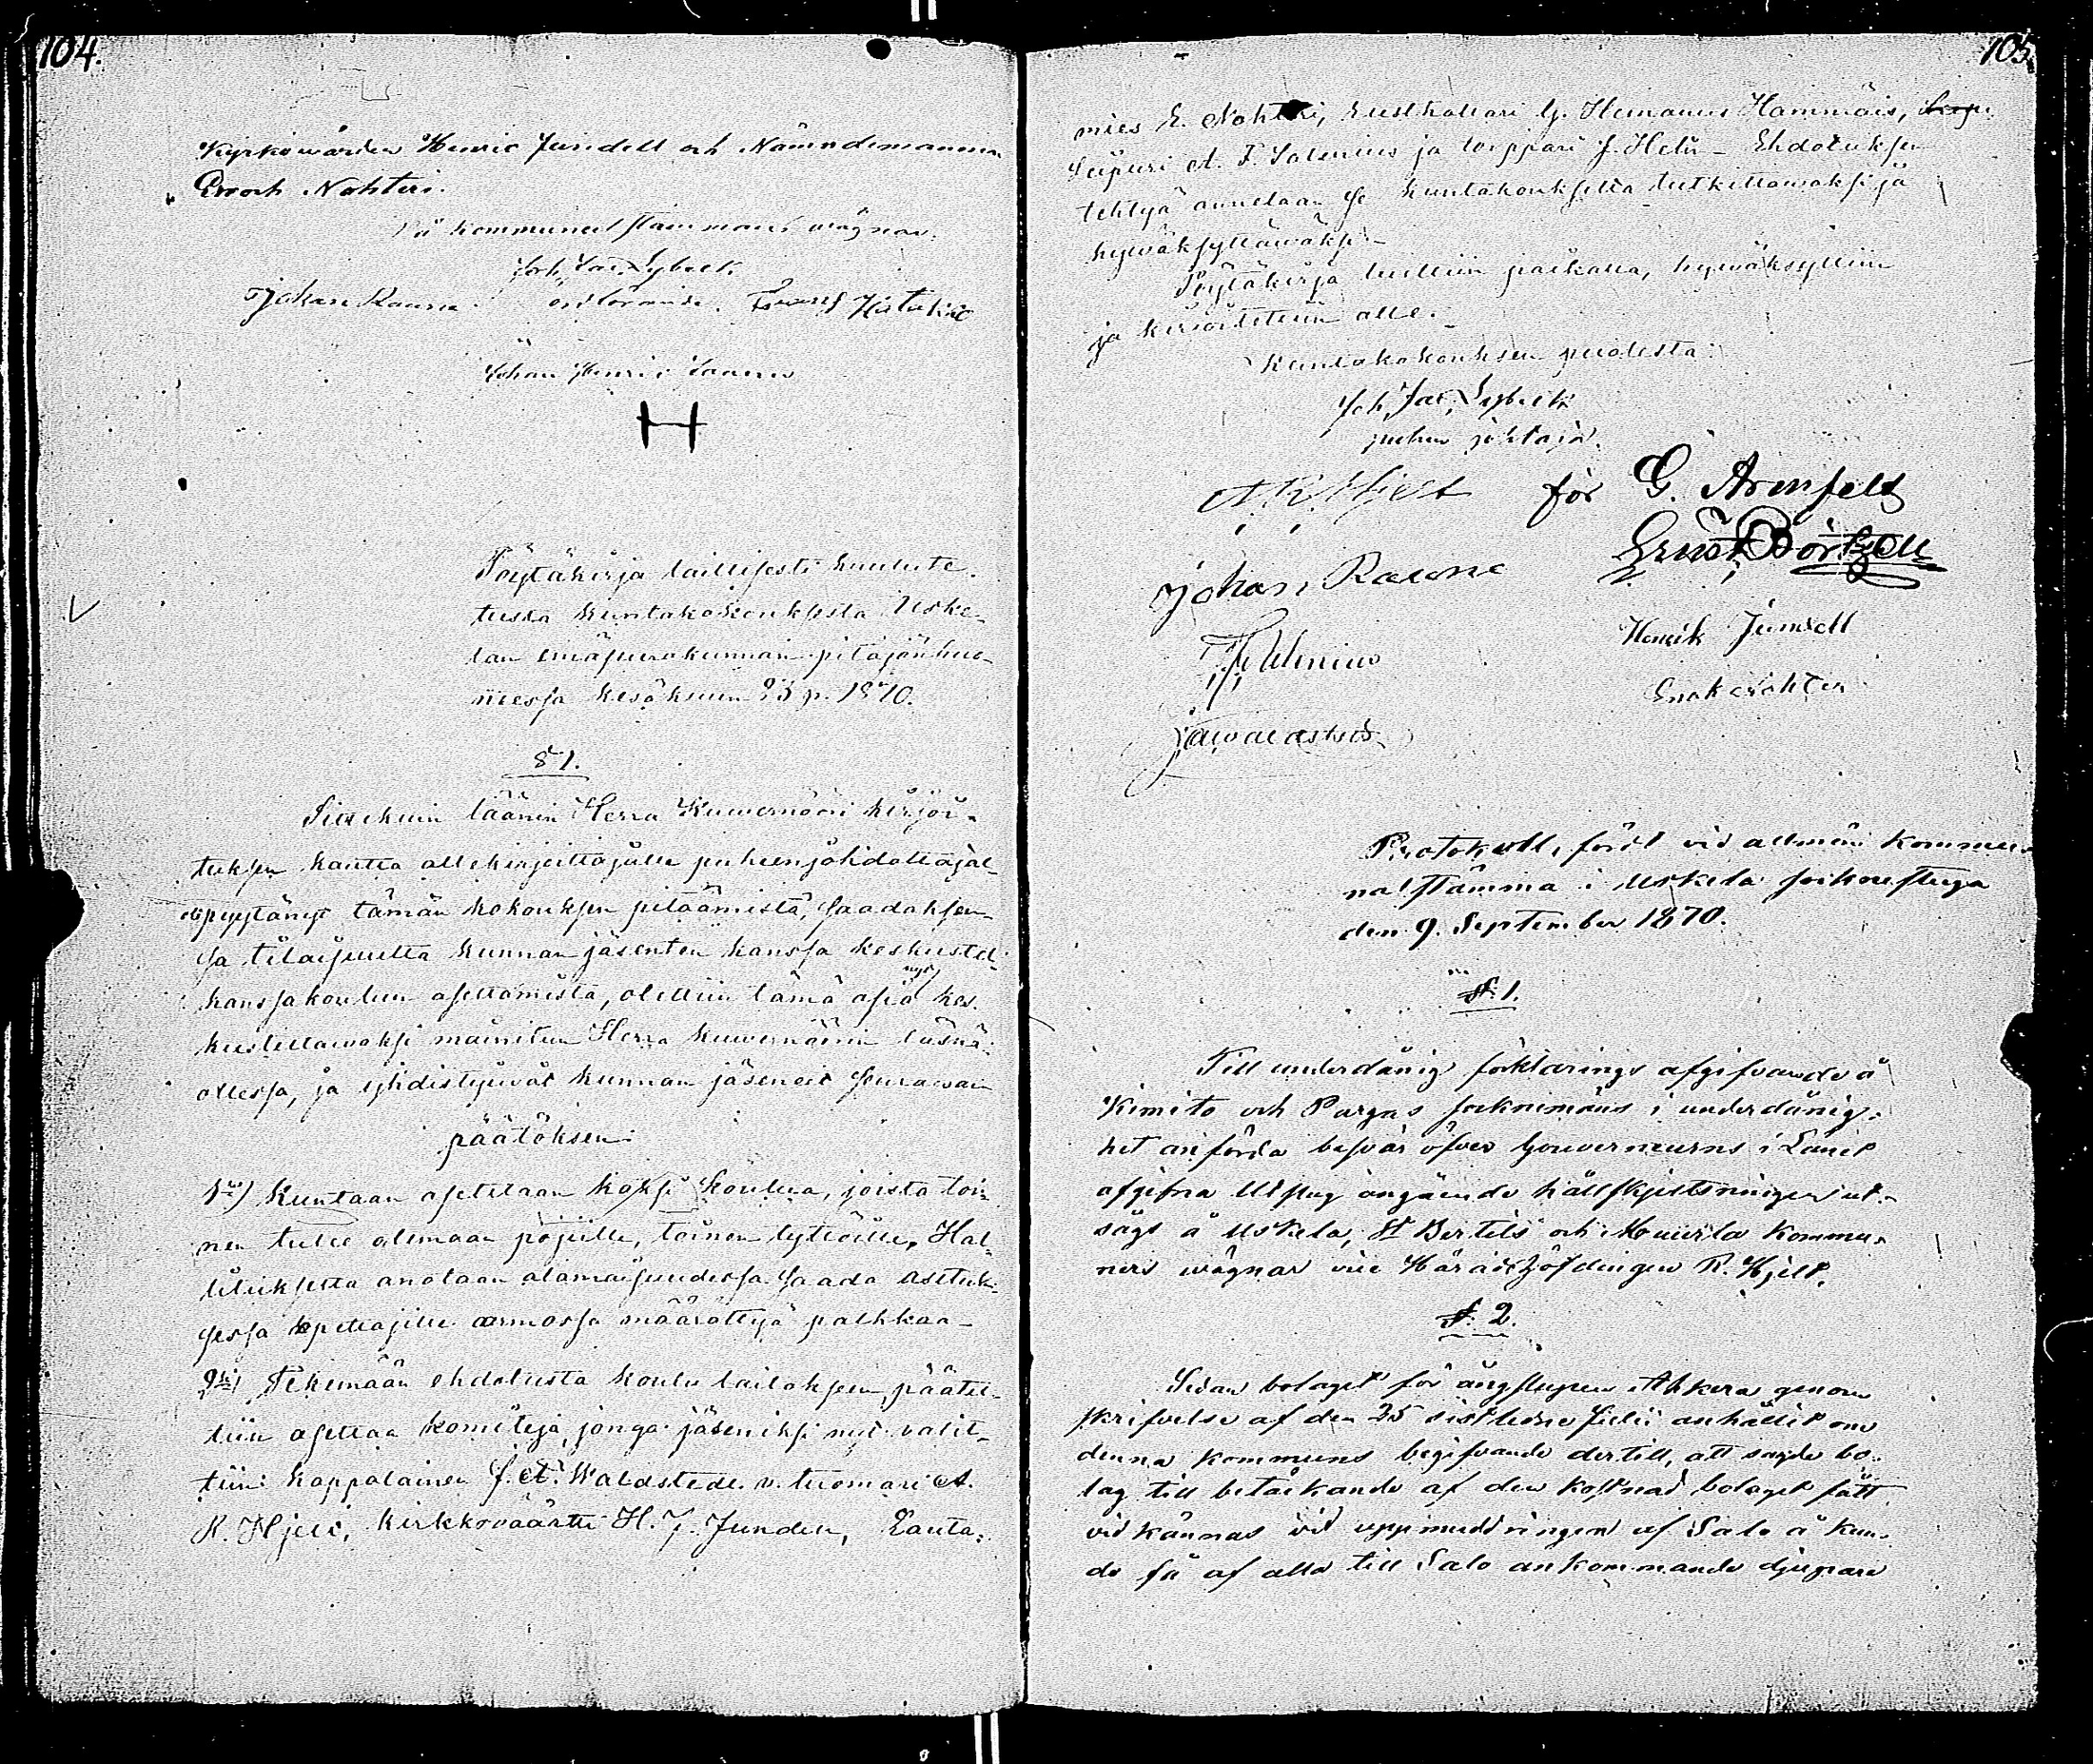 104.
Kyrkowärden Henric Jundell och Nämndemannen
Enoch Nohteri.
På kommunalstämmans wägnar:
Joh. Jac. Lybeck
ordförande.
Johan Rauna
Johan Henric
H
Pöytäkirja laillisesti kuulute-
tusta kuntakokouksesta Uske-
lan emäseurakunnan pitäjänhuo-
neessa kesäkuun 23 p. 1870.
§ 1.
Siitekuin läänin Herra Kuvernööri kirjoi-
tuksen kautta allekirjoittajalle puheenjohdattajal-
pyytänyt tämän kokouksen pitäämistä, saadaksen-
sa tilaisuutta kunnan jäsenten kanssa keskustel-
kansakoulun asettamista, otettiin tämä asia nyt kes-
kusteltawaksi mainitun Herra kuvernöörin läsnä-
ollessa, ja yhdistyiwät kunnan jäsenet seurawaan
päätöksen:
1ksi) Kuntaan asetetaan kaksi koulua, joista toi-
nen tulee olemaan pojille, toinen tyttöille. Hal-
lituksesta anotaan alamaisuudessa saada asetuk-
sessa opettajille armossa määrättyä palkkaa-
2ksi) Tekemään ehdotusta koulu laitoksen, päätet-
tiin asettaa komiteja, jonga jäseniksi nyt valit-
tiin: kappalainen J. A. Waldstedt. v. tuomari A.
R. Hjelt, kirkkoväärtti H. J. Jundell, Lauta-
105.
mies E. Nohteri, rusthollari G. Hemanus Hammäis,
Seipuri A. F. Salenius ja torppari J. Helin - Ehdotuksen
tehtyä annetaan se kuntakoukselta tutkittawaksi ja
hywäksyttäwäksi-
Pöytäkirja luettiin paikalla, hywäksyttiin
ja kirjoitettiin alle.
Kuntakokouksen puolesta:
Joh. Jac. Lybeck
puhen johtaja.
A. R. Hjelt för G. Armfelt
Ernst Börtzell
Johan Rauna
Henrik Jundell
Salenius
Enok Nohteri
J A Waldstedt
Protokoll, fördt vid allmän kommu-
nalstämma i Uskela sockenstuga
den 9. September 1870.
§. 1.
Till underdånig förklarings afgifvande å
Kimito och Pargas socknemäns i underdånig-
het anförda besvär öfver Gouverneurns i Länet
afgifna Utslag angående hållskjutsningen ut-
sågs å Uskela, St Bertels och Muurla kommu-
ners wägnar vice Häradshöfdingen R. Hjelt.
§. 2.
Sedan bolaget för ångslupen Ahkera genom
skrifvelse af den 25 sistledne Julii anhållit om
denna kommuns begifvande dertill, att sagde bo-
lag till betäckande af den kostnad bolaget fått
vidkännas vid uppmuddringen af Salo å kun-
de få af alla till Salo ankommande djupare